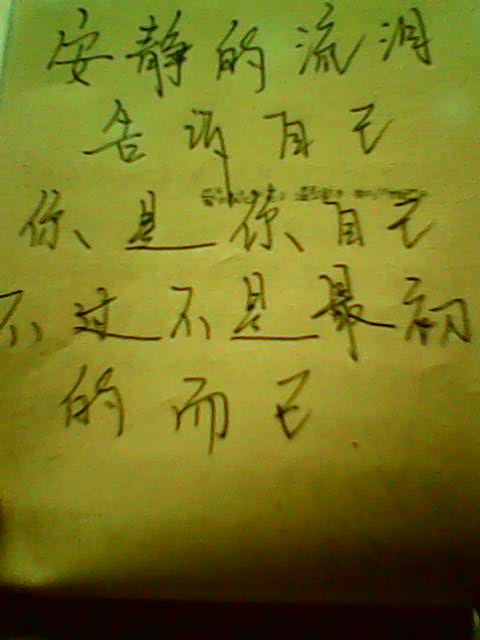 安静的流泪
告诉自己
你是你自己
不过不是最初
的而已.